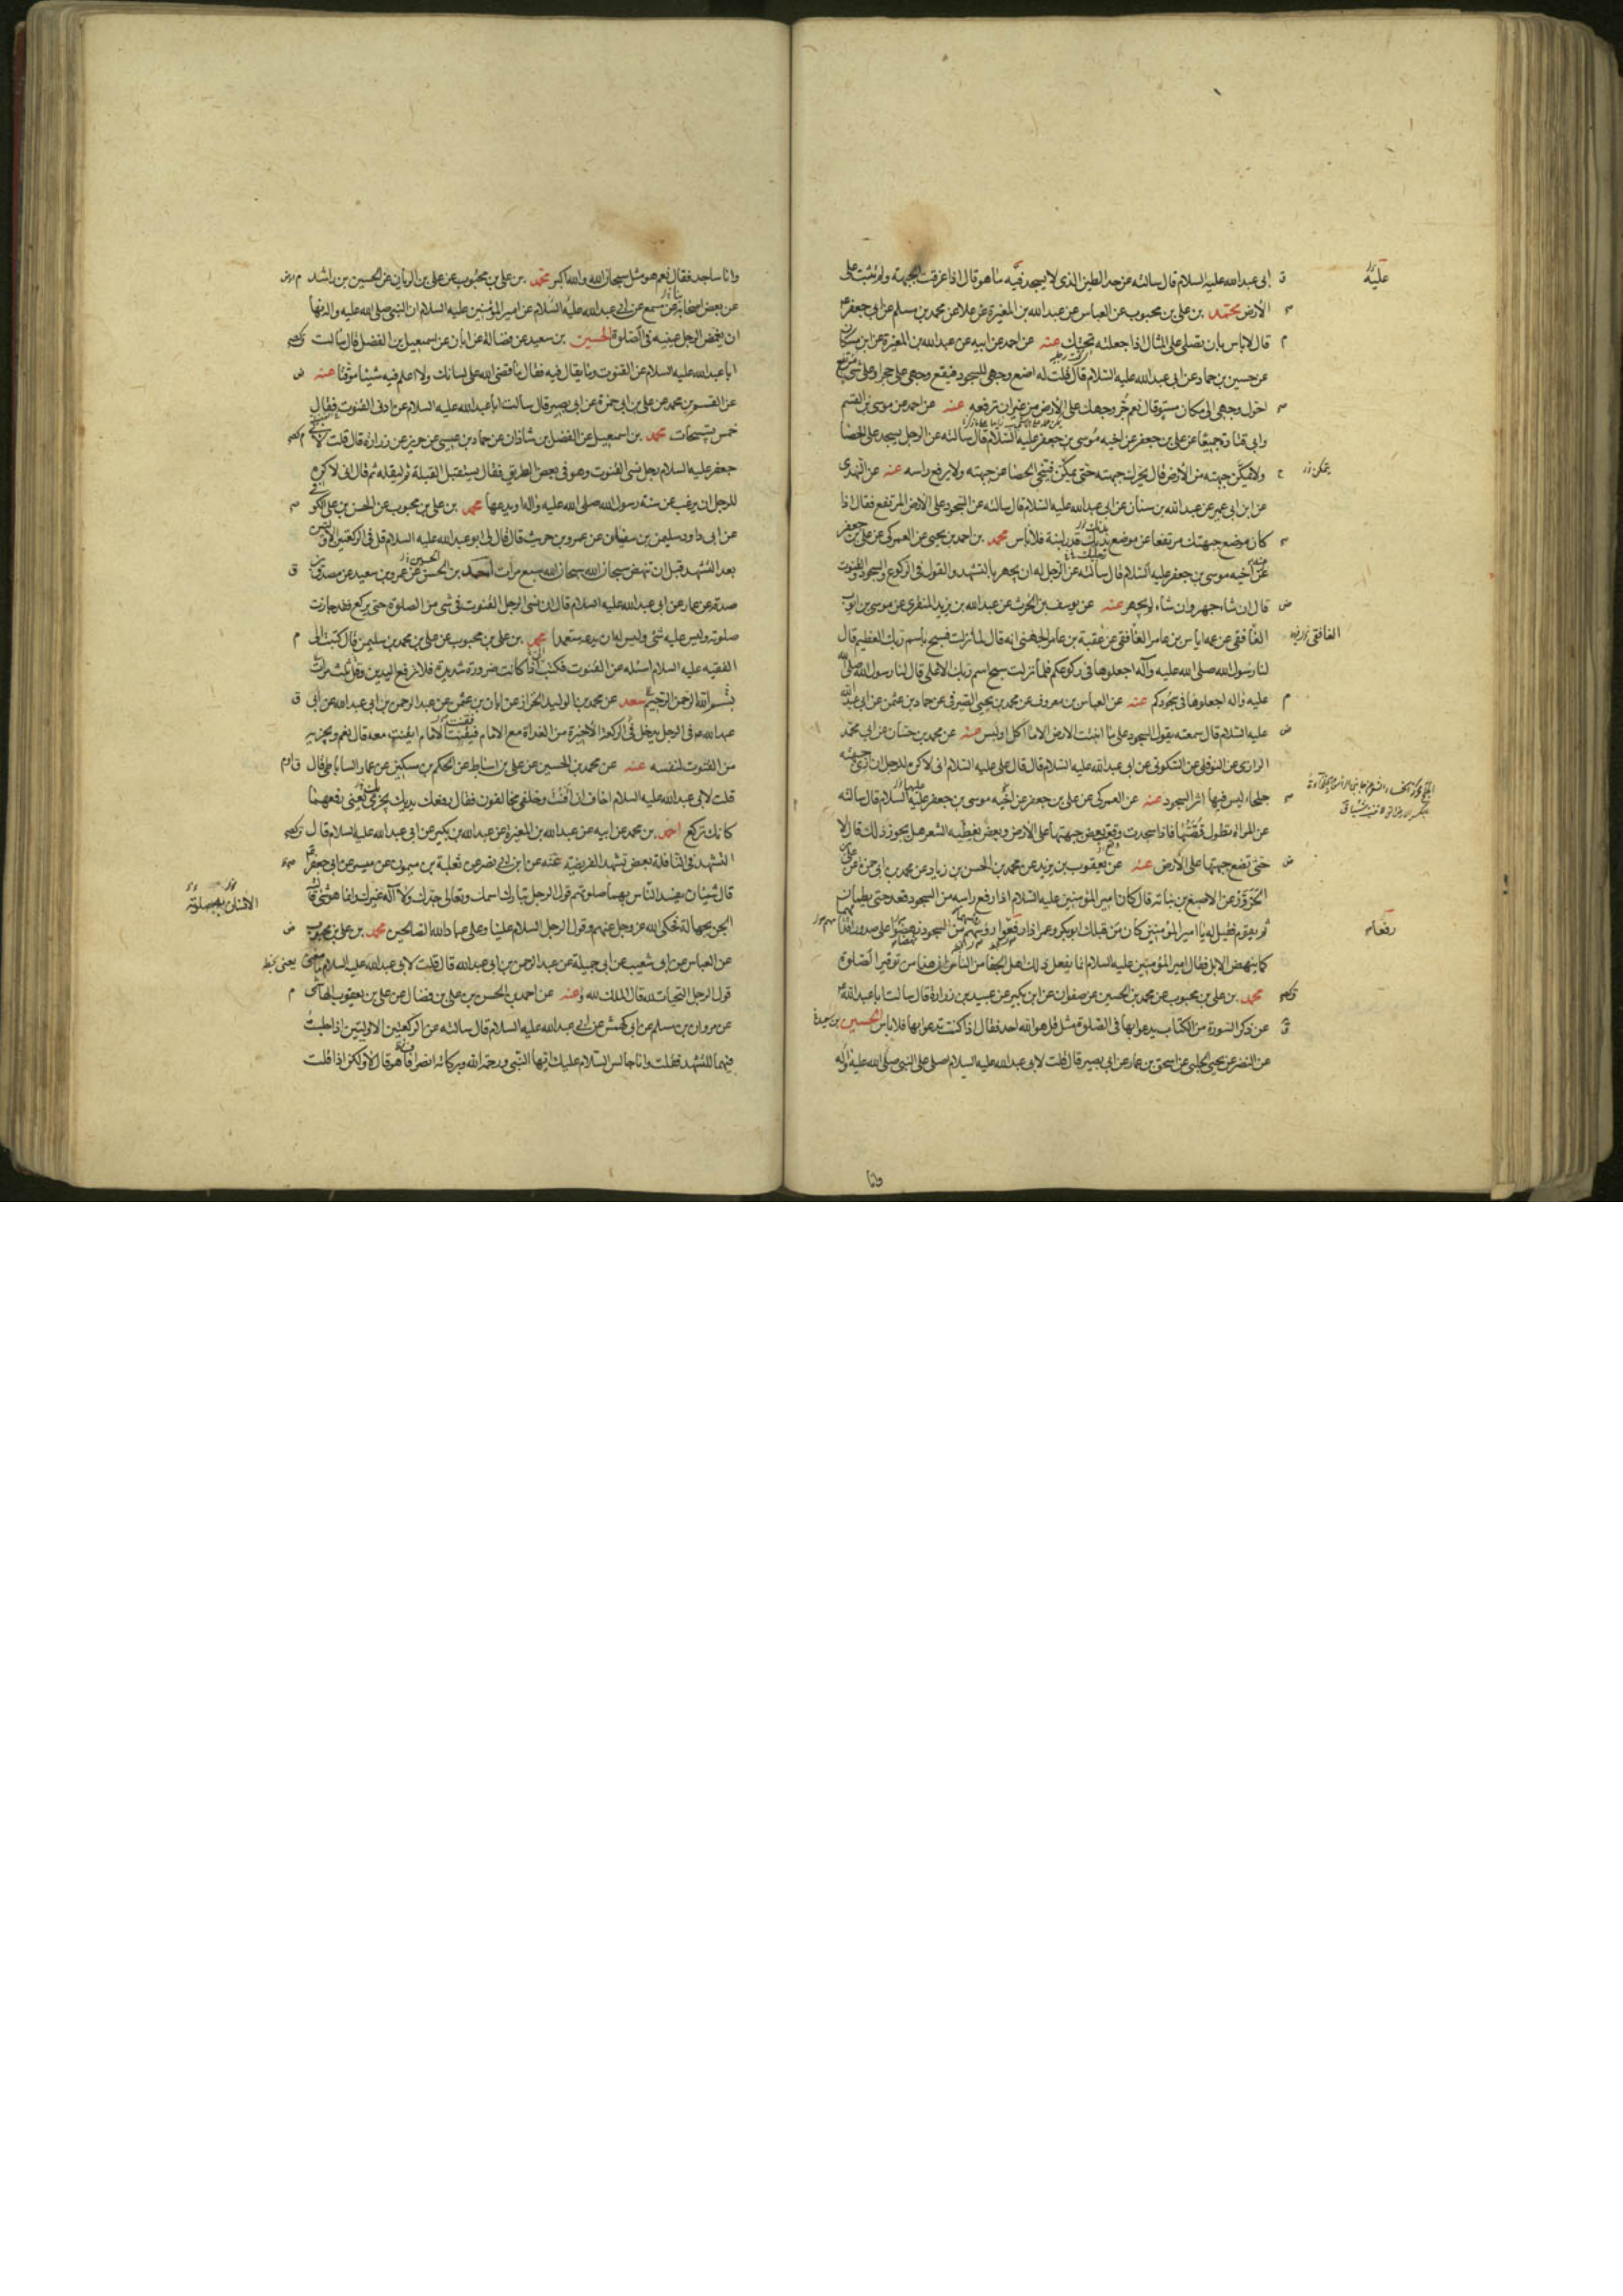 ابى عبد الله عليه السلام قال سالته عن حد الطين الذى لا يسجد فيه ما هو قال اذا غرقت الجبهة ولم تثبت على
الارض محمد بن على بن محبوب عن العباس عن عبد الله بن المغيرة عن علا عن محمد بن مسلم عن ابى جعفر
قال لا باس بان تصلى على المثال اذا جعلته تحتك عنه عن احمد عن ابيه عن عبد الله بن المغيرة عن ابن مسكان
عن حسين بن حماد عن ابى عبد الله عليه السلام قال قلت له اضع وجهى للسجود فيقع وجهى على حجر او على شى مرتفع
احول وجهى الى مكان مستو قال نعم جر وجهك على الارض من غير ان ترفعه عنه عن احمد عن موسى بن القسم
وابى قتادة جميعا عن على بن جعفر عن اخيه موسى بن جعفر عليه السلام قال سالته عن الرجل يسجد على الحصا
ولا يمكن جبهته من الارض قال يحرك جبهته حتى يمكن فينحى الحصا عن جبهته ولا يرفع راسه عنه عن النهدى
عن ابن ابى عمير عن عبد الله بن سنان عن ابى عبد الله عليه السلام قال سالته عن السجود على الارض المرتفع فقال اذا
كان موضع جبهتك مرتفعا عن موضع بدنك قدر لبنة فلا باس محمد بن احمد بن يحيى عن العمركى عن على بن جعفر
عن اخيه موسى بن جعفر عليه السلام قال سالته عن الرجل له ان يجهر بالتشهد والقول فى الركوع والسجود والقنوت
قال ان شاء جهر وان شاء لم يجهر عنه عن يوسف بن الحرث عن عبد الله بن يزيد المنقرى عن موسى بن ايوب
الغافقى عن عمه اياس بن عامر الغافقى عن عقبة بن عامر الجهنى انه قال لما نزلت فسبح باسم ربك العظيم قال
لنا رسول الله صلى الله عليه وآله اجعلوها فى ركوعكم فلما نزلت سبح اسم ربك الاعلى قال لنا رسول الله صلى الله
عليه واله اجعلوها فى سجودكم عنه عن العباس بن معروف عن محمد بن يحيى الصيرفى عن حماد بن عثمن عن ابى عبد الله
عليه السلام قال سمعته يقول السجود على ما انبتت الارض الا ما اكل او لبس عنه عن محمد بن حسان عن ابى محمد
الرازى عن النوفلى عن السكونى عن ابى عبد الله عليه السلام قال قال على عليه السلام انى لاكره للرجل ان ارى جبهته
جلحاء ليس فيها اثر السجود عنه عن العمركى عن على بن جعفر عن اخيه موسى بن جعفر عليه السلام قال سالته
عن المراة تطول قصتها فاذا سجدت وقع بعض جبهتها على الارض وبعض يغطيه الشعر هل يجوز ذلك قال لا
حتى تضع جبهتها على الارض عنه عن يعقوب بن يزيد عن محمد بن الحسن بن زياد عن محمد بن ابى حمزة عن على
الحزور عن الاصبغ بن نباته قال كان امير المؤمنين عليه السلام اذا رفع راسه من السجود قعد حتى يطمان
ثم يقوم فقيل له يا امير المؤمنين كان من قبلك ابو بكر وعمر اذا رفعوا رؤسهم من السجود نهضوا على صدور اقدامهم
كما ينهض الابل فقال امير المؤمنين عليه السلام انما يفعل ذلك اهل الجفا من الناس ان هذا من توقير الصلوة
محمد بن على بن محبوب عن محمد بن الحسين عن صفوان عن ابن بكير عن عبيد بن زرارة قال سالت ابا عبد الله
عن ذكر السورة من الكتاب يدعو بها فى الصلوة مثل قل هو الله احد فقال اذا كنت تدعو بها فلا باس الحسين بن سعيد
عن النضر عن يحيى الحلبى عن اسحق بن عمار عن ابى بصير قال قلت لابى عبد الله عليه السلام اصلى على النبى صلى الله عليه واله
وانا
وانا ساجد فقال نعم هو مثل سبحان الله والله اكبر محمد بن على بن محبوب عن على بن الريان عن الحسين بن راشد
عن بعض اصحابه عن مسمع عن ابى عبد الله عليه السلام عن امير المؤمنين عليه السلام ان النبى صلى الله عليه واله نها
ان يغمض الرجل عينيه فى الصلوة الحسين بن سعيد عن فضالة عن ابان عن اسمعيل بن الفضل قال سالت
ابا عبد الله عليه السلام عن القنوت وما يقال فيه فقال ما قضى الله على لسانك ولا اعلم فيه شيئا موقتا عنه
عن القسم بن محمد عن على بن ابى حمزة عن ابى بصير قال سالت ابا عبد الله عليه السلام عن ادنى القنوت فقال
خمس تسبيحات محمد بن اسمعيل عن الفضل بن شاذان عن حماد بن عيسى عن حريز عن زرارة قال قلت لابى
جعفر عليه السلام رجل نسى القنوت وهو فى بعض الطريق فقال يستقبل القبلة ثم ليقله ثم قال انى لاكره
للرجل ان يرغب عن سنة رسول الله صلى الله عليه واله او يدعها محمد بن على بن محبوب عن الحسن بن على الكوفى
عن ابى داود سليمن بن سفيان عن عمرو بن حريث قال قال لى ابو عبد الله عليه السلام قل فى الركعتين الاولتين
بعد التشهد قبل ان تنهض سبحان الله سبحان الله سبع مرات احمد بن الحسن عن عمرو بن سعيد عن مصدق بن
صدقة عن عمار عن ابى عبد الله عليه السلام قال ان نسى الرجل القنوت فى شى من الصلوة حتى يركع فقد جازت
صلوته وليس عليه شى وليس له ان يدعه متعمدا محمد بن على بن محبوب عن على بن محمد بن سليمن قال كتبت الى
الفقيه عليه السلام اسئله عن القنوت فكتب اذا كانت ضرورة شديدة فلا ترفع اليدين وقل ثلث مرات
بسم الله الرحمن الرحيم سعد عن محمد بن الوليد الخزاز عن ابان بن عثمن عن عبد الرحمن بن ابى عبد الله عن ابى
عبد الله فى الرجل يدخل فى الركعة الاخيرة من الغداة مع الامام فيقنت الامام ايقنت معه قال نعم ويجزيه
من القنوت لنفسه عنه عن محمد بن الحسين عن على بن اسباط عن الحكم بن مسكين عن عمار الساباطى قال
قلت لابى عبد الله عليه السلام اخاف ان اقنت وخلفى مخالفون فقال رفعك يديك يجزى يعنى رفعهما
كانك تركع احمد بن محمد عن ابيه عن عبد الله بن المغيرة عن عبد الله بن بكير عن ابى عبد الله عليه السلام قال
التشهد فى النافلة بعض تشهد الفريضة عنه عن ابن ابى نصر عن ثعلبة بن ميمون عن ميسر عن ابى جعفر
قال شيئان يفسد الناس بهما صلوتهم قول الرجل تبارك اسمك وتعالى جدك ولا اله غيرك وانما هو شى قالته
الجن بجهالة فحكى الله عز وجل عنهم وقول الرجل السلام علينا وعلى عباد الله الصالحين محمد بن على بن محبوب
عن العباس عن ابى شعيب عن ابى جميلة عن عبد الرحمن بن ابى عبد الله قال قلت لابى عبد الله عليه السلام ما معنى
قول الرجل التحيات لله قال الملك لله وعنه عن احمد بن الحسن بن على بن فضال عن على بن يعقوب الهاشمى
عن مروان بن مسلم عن ابى كهمش عن ابى عبد الله عليه السلام قال سالته عن الركعتين الاوليتين اذا جلست
فيهما للتشهد فقلت وانا جالس السلام عليك ايها النبى ورحمة الله وبركاته انصراف هو قال لا ولكن اذا قلت